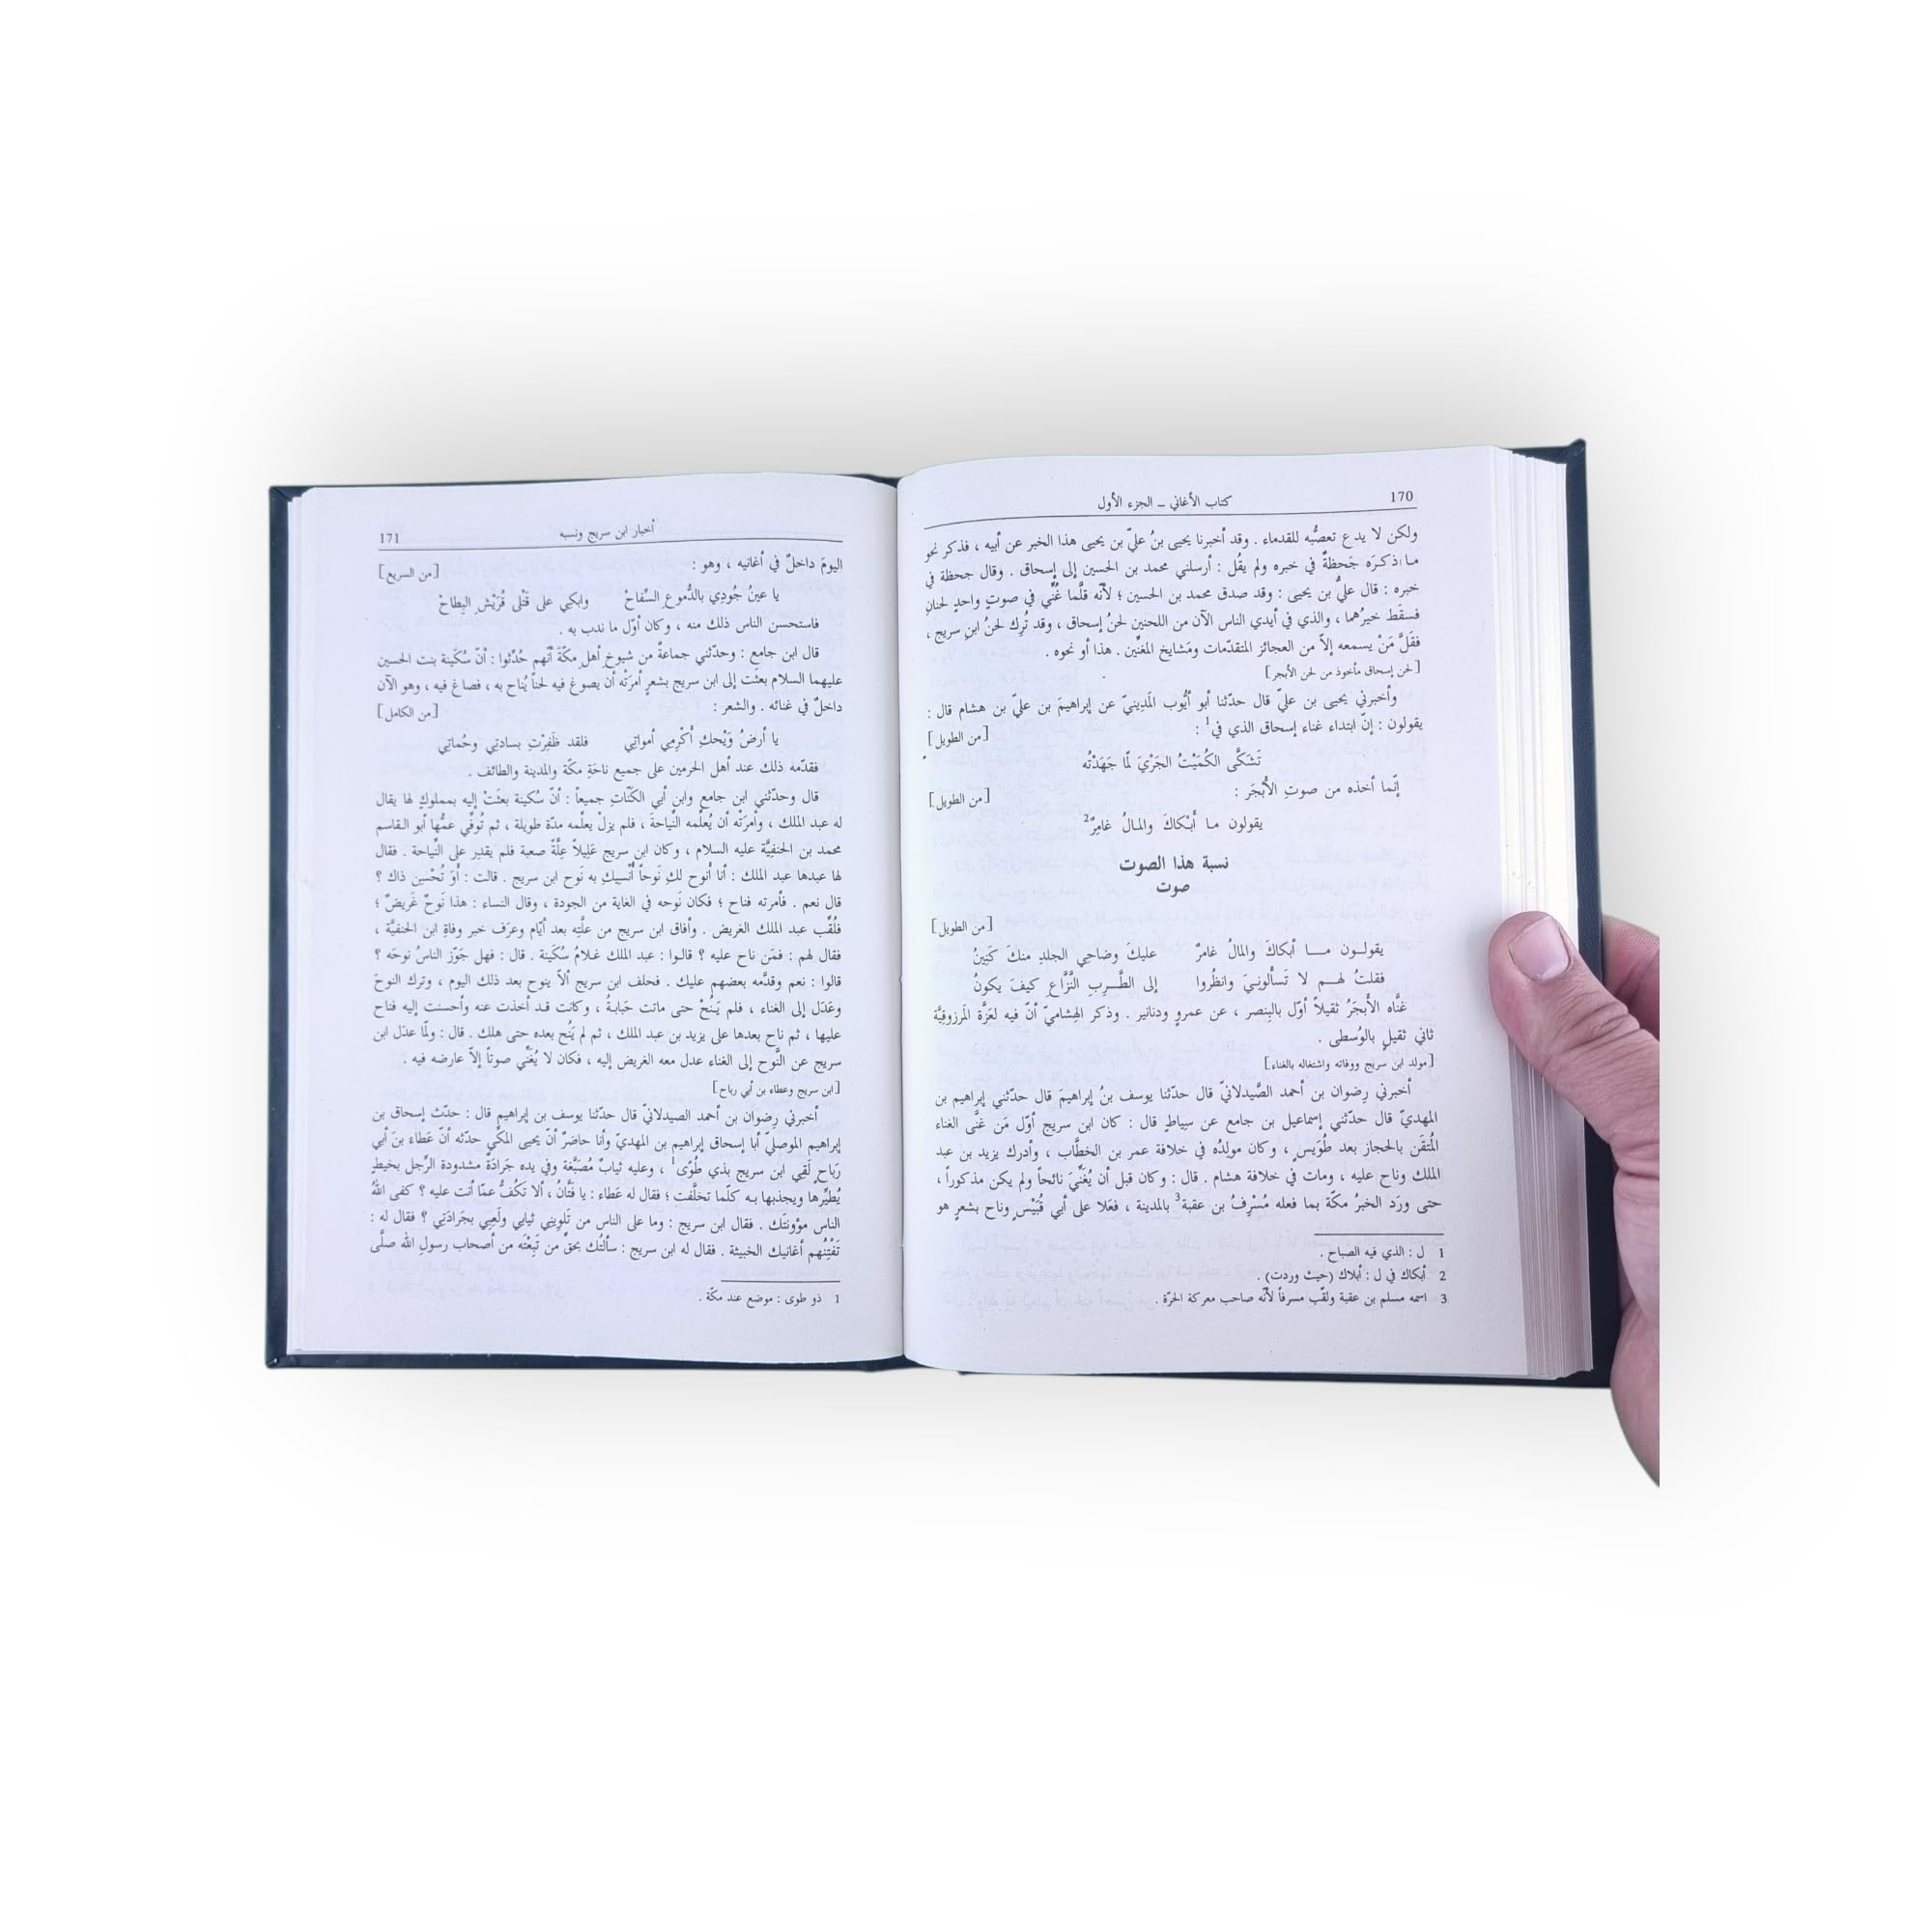 170
كتاب الأغاني ــ الجزء الأول
ولكن لا يدع تعصُّبه للقدماء . وقد أخبرنا يحيى بنُ عليّ بن يحيى هذا الخبر عن أبيه ، فذكر نحو
ما ذكرَه جَحظةٌ في خبره ولم يقُل : أرسلني محمد بن الحسين إلى إسحاق . وقال جحظة في
خبره : قال عليُّ بن يحيى : وقد صدق محمد بن الحسين ؛ لأنّه قلَّما غُنِّي في صوتٍ واحدٍ لحنانِ
فسقَط خيرُهما ، والذي في أيدي الناس الآن من اللحنين لحنُ إسحاق ، وقد تُرِك لحنُ ابن سريج ،
فقَلَّ مَنْ يسمعه إلاّ من العجائز المتقدّمات ومَشايخ المغنِّين . هذا أو نحوه .
[لحن إسحاق مأخوذ من لحن الأبجر]
وأخبرني يحيى بن عليّ قال حدّثنا أبو أيُّوب المَدِينيّ عن إبراهيمَ بن عليّ بن هشام قال :
يقولون : إنّ ابتداء غناء إسحاق الذي في1 :
[من الطويل]
تَشَكَّى الكُمَيْتُ الجَرْيَ لمّا جَهَدْتُه
إنّما أخذه من صوتِ الأَبْجَر :
[من الطويل]
يقولون ما أَبْكاكَ والمالُ غامِرٌ2
نسبة هذا الصوت
صوت
[من الطويل]
يقولـون مـــا أبكاكَ والمالُ غامرٌ عليكَ وضاحِي الجلدِ منكَ كَنِينُ
فقلتُ لهـــم لا تَسألونيَ وانظُروا إلى الطَّـــرِبِ النَّزَّاعِ كيفَ يكونُ
غنَّاه الأَبجَرُ ثقيلاً أوّل بالبِنصر ، عن عمروٍ ودنانير . وذكر الهِشاميّ أنّ فيه لعَزَّة المَرزوقيَّة
ثاني ثقيلٍ بالوُسطى .
[مولد ابن سريج ووفاته واشتغاله بالغناء]
أخبرني رِضوان بن أحمد الصَّيدلانيّ قال حدّثنا يوسف بنُ إبراهيمَ قال حدّثني إبراهيم بن
المهديّ قال حدّثني إسماعيل بن جامع عن سِياطٍ قال : كان ابن سريج أوّل مَن غنَّى الغناء
المُتقَن بالحجاز بعد طُوَيس ، وكان مولِدُه في خلافة عمر بن الخطَّاب ، وأدرك يزيد بن عبد
الملك وناح عليه ، ومات في خلافة هشام . قال : وكان قبل أن يُغَنِّيَ نائحاً ولم يكن مذكوراً ،
حتى ورَد الخبرُ مكّة بما فعله مُسْرِفُ بن عقبة3 بالمدينة ، فعَلا على أبي قُبَيْس وناح بشعرٍ هو
1 ل : الذي فيه الصباح .
2 أبكاك في ل : أبلاك (حيث وردت) .
3 اسمه مسلم بن عقبة ولقّب مسرفاً لأنّه صاحب معركة الحرّة .
أخبار ابن سريج ونسبه
171
اليومَ داخلٌ في أغانيه ، وهو :
[من السريع]
يا عينُ جُودِي بالدُّموعِ السِّفاحْ وابكِي على قَتْلى قُرَيْشِ البِطاحْ
فاستحسن الناس ذلك منه ، وكان أوّل ما ندب به .
قال ابن جامع : وحدّثني جماعةٌ من شيوخِ أهلِ مكّةَ أنّهم حُدِّثوا : أنّ سُكَينة بنت الحسين
عليهما السلام بعثَت إلى ابن سريج بشعرٍ أمرَتْه أن يصوغ فيه لحناً يُناح به ، فصاغ فيه ، وهو الآن
داخلٌ في غنائه . والشعر :
[من الكامل]
يا أرضُ وَيْحكِ أَكْرِمِي أمواتي فلقد ظَفِرْتِ بسادتي وحُماتِي
فقدّمه ذلك عند أهل الحرمين على جميع ناحَةِ مكّة والمدينة والطائف .
قال وحدّثني ابن جامع وابن أبي الكَنّات جميعاً : أنّ سُكينة بعثَتْ إليه بمملوكٍ لها يقال
له عبد الملك ، وأمرَتْه أن يُعلِّمه النِّياحةَ ، فلم يزلْ يعلّمه مدّة طويلة ، ثم تُوفِّي عمُّها أبو القاسم
محمد بن الحنفيَّة عليه السلام ، وكان ابن سريج عَلِيلاً عِلَّةً صعبة فلم يقدِر على النِّياحة . فقال
لها عبدها عبد الملك : أنا أنوح لكِ نَوحاً أُنسِيكِ به نَوح ابن سريج . قالت : أوَ تُحْسِن ذاك ؟
قال نعم . فأمرته فناح ؛ فكان نَوحه في الغاية من الجودة ، وقال النساء : هذا نَوحٌ غَريضٌ ؛
فلُقِّب عبد الملك الغريض . وأفاق ابن سريج من علَّتِه بعد أيّام وعرَف خبر وفاةِ ابن الحنفيَّة ،
فقال لهم : فمَن ناح عليه ؟ قالـوا : عبد الملك غـلامُ سُكَينة . قال : فهل جَوَّز الناسُ نوحَه ؟
قالوا : نعم وقدَّمه بعضهم عليك . فحلف ابن سريج ألاّ ينوح بعد ذلك اليوم ، وترك النوحَ
وعَدَل إلى الغناء ، فلم يَنُحْ حتى ماتت حَبَابةُ ، وكانت قد أخذت عنه وأحسنت إليه فناح
عليها ، ثم ناح بعدها على يزيد بن عبد الملك ، ثم لم يَنُح بعده حتى هلك . قال : ولمّا عدَل ابن
سريج عن النَّوح إلى الغناء عدل معه الغريض إليه ، فكان لا يُغَنِّي صوتاً إلاّ عارضه فيه .
[ابن سريج وعطاء بن أبي رباح]
أخبرني رِضوان بن أحمد الصيدلانيّ قال حدّثنا يوسف بن إبراهيم قال : حدّث إسحاق بن
إبراهيم الموصليّ أبا إسحاق إبراهيم بن المهديّ وأنا حاضرٌ أنّ يحيى المكّي حدّثه أنّ عَطاء بنَ أبي
رَباحٍ لَقِي ابن سريج بذي طُوًى1 ، وعليه ثيابٌ مُصَبَّغة وفي يده جَرادَةٌ مشدودة الرِّجل بخيطٍ
يُطيِّرها ويجذبها به كلّما تخلَّفت ؛ فقال له عَطاء : يا فَتَّانُ ، ألا تكُفُّ عمّا أنت عليه ؟ كفى اللهُ
الناس مؤونتَك . فقال ابن سريج : وما على الناس من تَلوِيني ثيابي ولَعِبي بجَرادَتِي ؟ فقال له :
تَفْتِنُهم أغانيك الخبيثة . فقال له ابن سريج : سألتُك بحقِّ من تَبِعْتَه من أصحاب رسولِ الله صلَّى
1 ذو طوى : موضع عند مكّة .